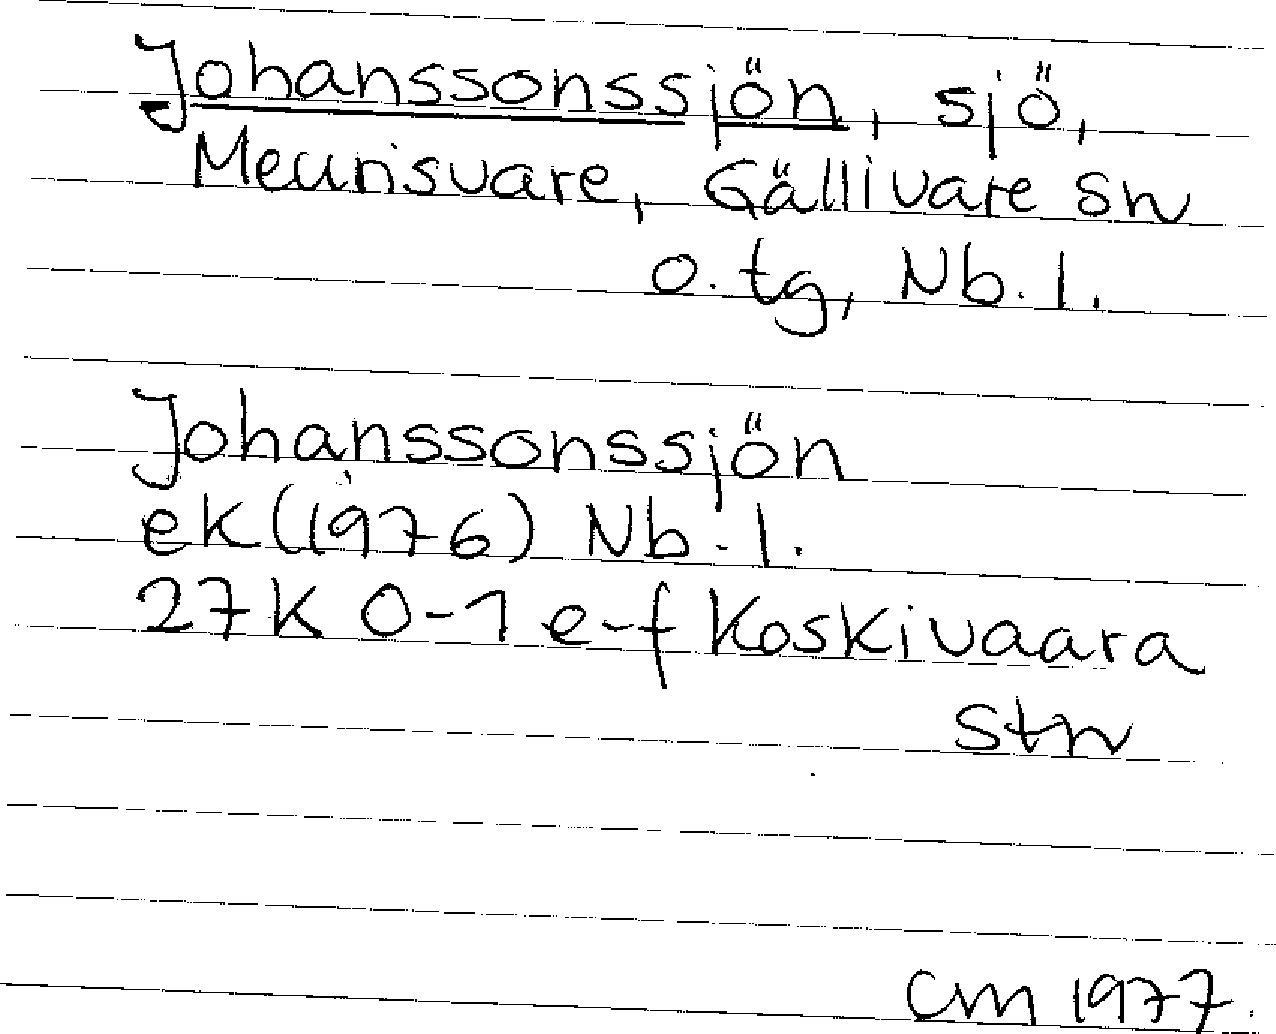 Johanssonssjön, sjö,
Meurisvare, Gällivare sn
o. tg, Nb. l.
Johanssonssjön
ek (1976) Nb. l.
27K 0-1 e-f Koskivaara
stn
CM 1977.